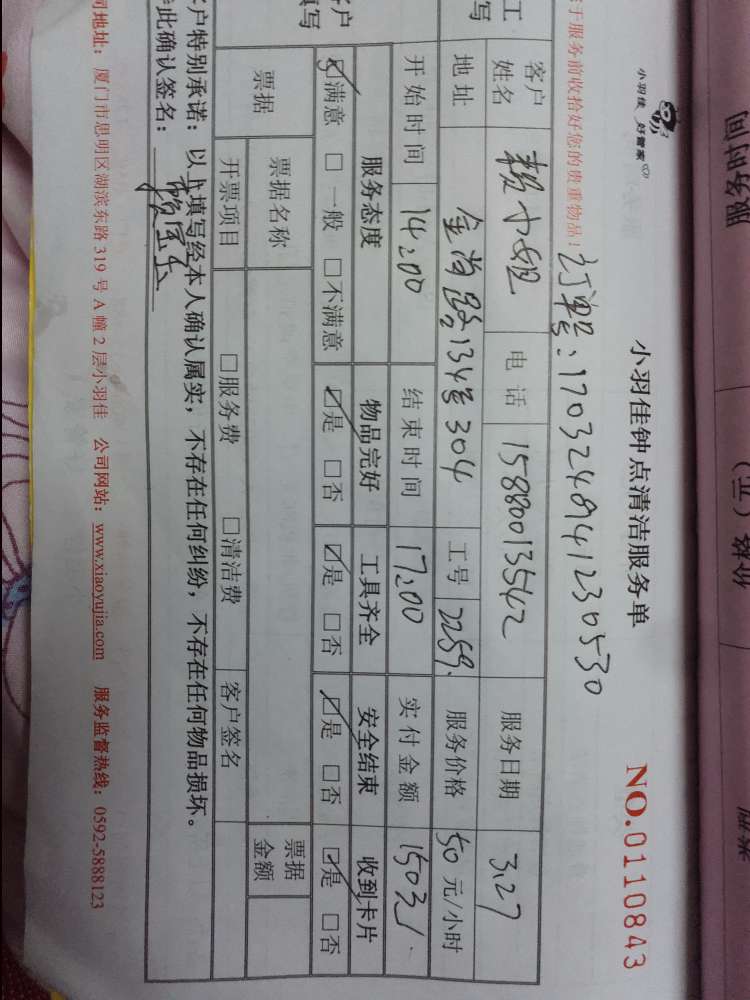 服务时间
价格(元)
小羽佳 好管家
小羽佳钟点清洁服务单
NO.0110843
于服务前收拾好您的贵重物品!
订单号:1703248941230530
客户姓名 赖小姐 电话 15880013542 服务日期 3.27
地址 金尚路134号304 工号 2259. 服务价格 50元/小时
开始时间 14:00 结束时间 17:00 实付金额 150元.
服务态度 物品完好 工具齐全 安全结束 收到卡片
☑满意 □一般 □不满意 ☑是 □否 ☑是 □否 ☑是 □否 ☑是 □否
票据 票据名称 票据金额
开票项目 □服务费 □清洁费 客户签名
户特别承诺:以上填写经本人确认属实,不存在任何纠纷,不存在任何物品损坏。
此确认签名:
司地址:厦门市思明区湖滨东路319号A幢2层小羽佳 公司网站:www.xiaoyujia.com 服务监督热线:0592-5888123